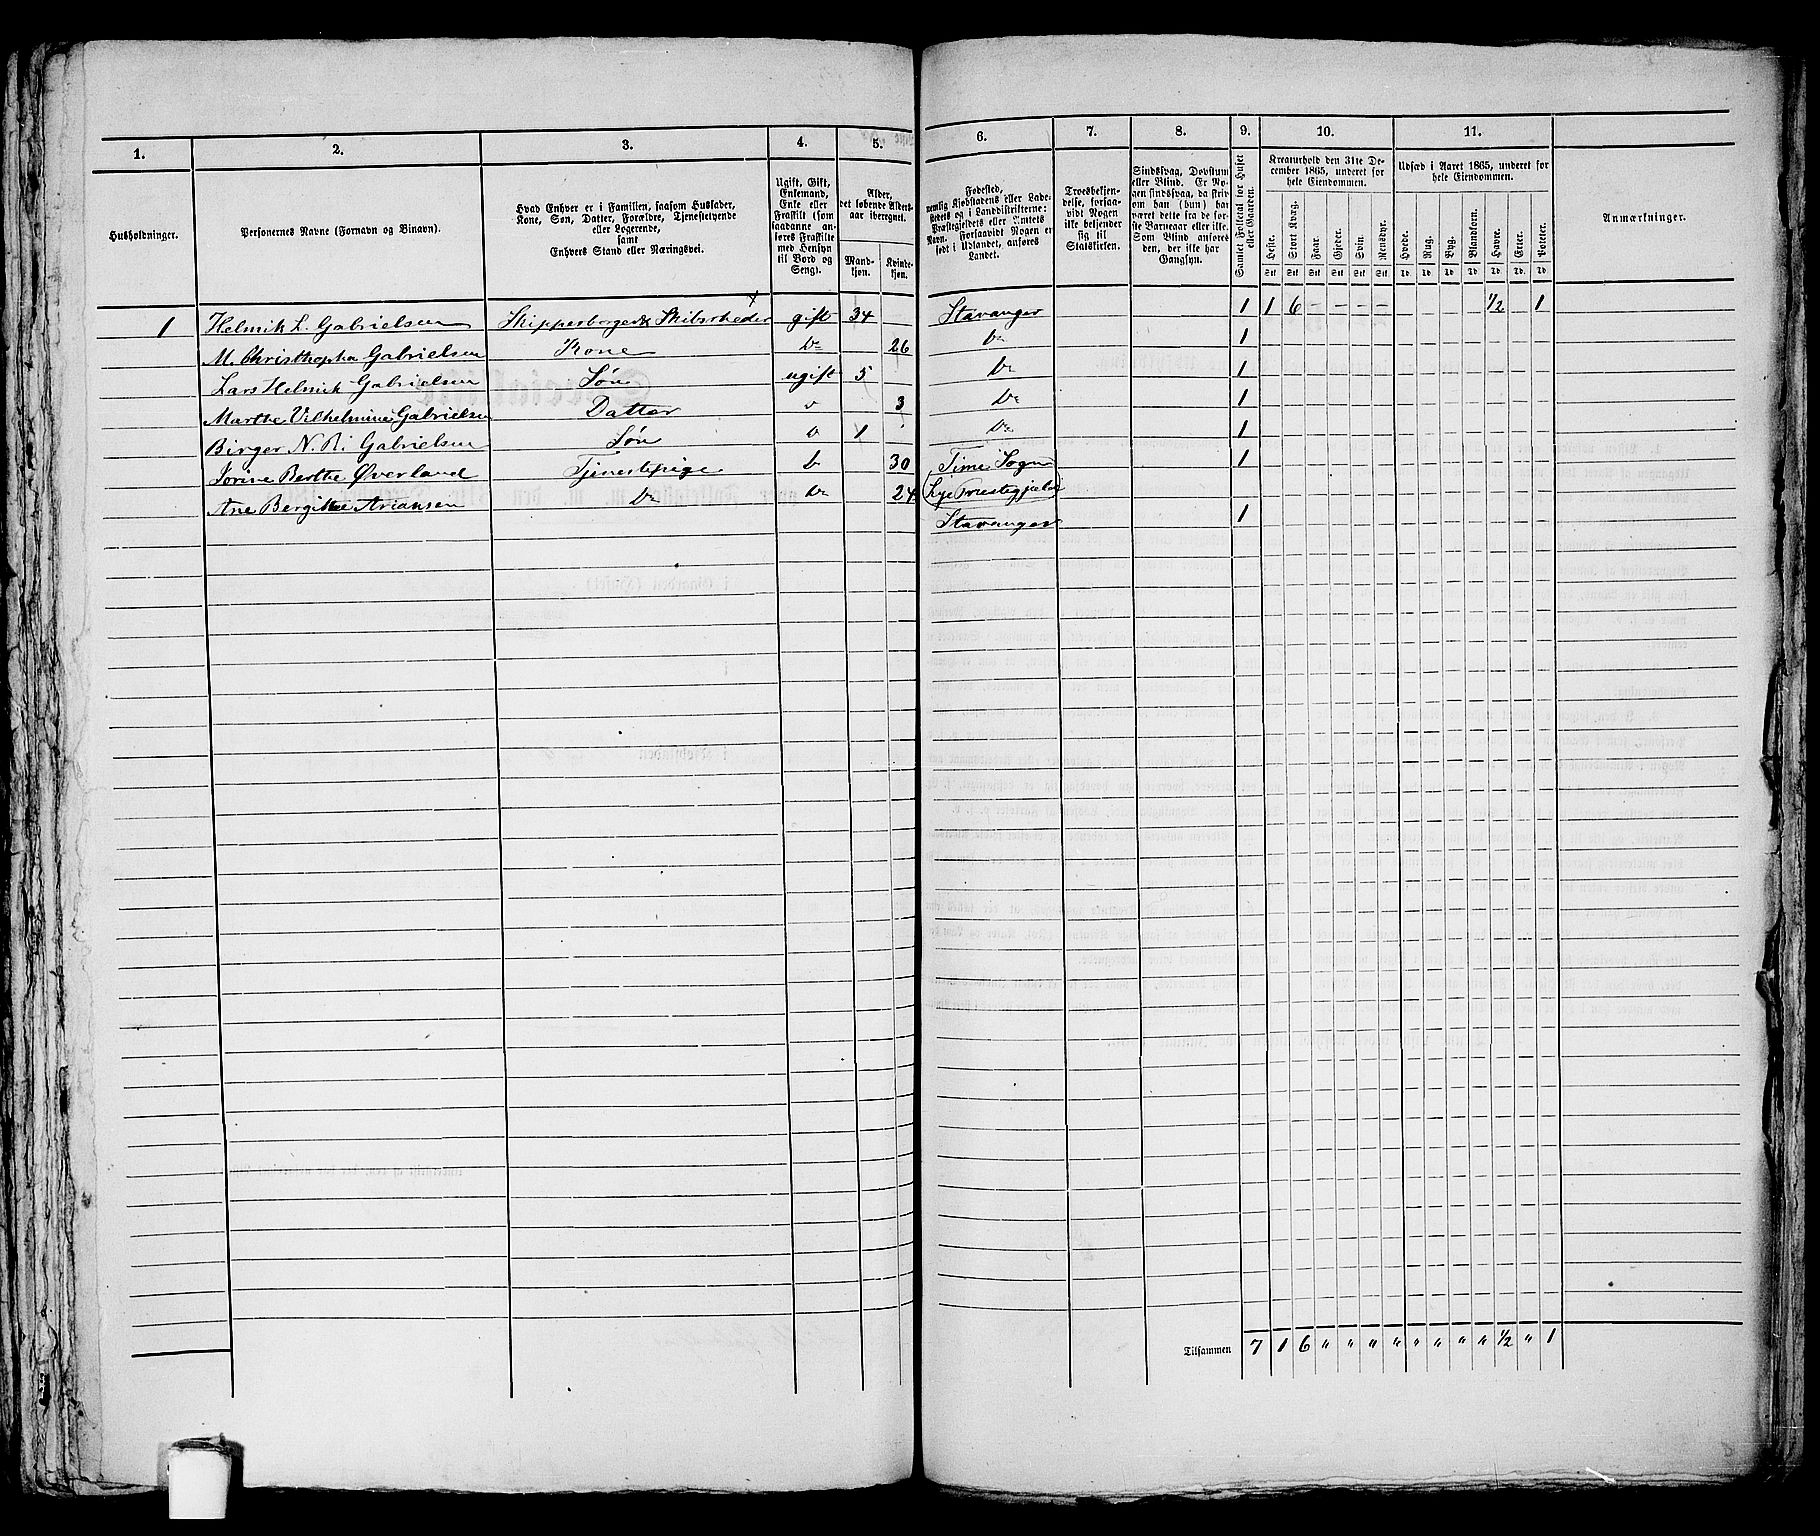 1. 2. 3. 4. 5. 6. 7. 8. 9. 10. 11.
Husholdninger.
Personernes Navne (Fornavn og Binavn).
Hvad Enhver er i Familien, saasom Husfader,
Kone, Søn, Datter, Forældre, Tjenestetyende
eller Logerende,
samt
Enhvers Stand eller Næringsvei.
Ugift, Gift,
Enkemand,
Enke eller
Fraskilt (som
saadanne an-
føres Fraskilte
med Hensyn
til Bord og
Seng).
Alder,
det løbende Alders-
aar iberegnet.
Mand-
kjøn.
Kvinde-
kjøn.
Fødested,
nemlig Kjøbstadens eller Lade-
stedets og i Landdistrikterne:
Præstegjeldets eller Amtets
Navn. Forsaavidt Nogen er
født i Udlandet, anføres
Landet.
Troesbekjen-
delse, forsaa-
vidt Nogen
ikke bekjender
sig til
Statskirken.
Sindssvag, Døvstum
eller Blind. Er No-
gen sindssvag, da skri-
ves om han (hun) har
været dette fra de før-
ste Barneaar eller ikke.
Som Blind anføres
den, der ikke har
Gangsyn.
Samlet Folketal for Huset
eller Gaarden.
Kreaturhold den 31te De-
cember 1865, underet for
hele Eiendommen.
Heste. Stort Kvæg. Faar. Gjeder. Svin. Rensdyr.
Stk Stk Stk Stk Stk Stk
Udsæd i Aaret 1865, underet for
hele Eiendommen.
Hvede. Rug. Byg. Blandkorn. Havre. Erter. Poteter.
Anmærkninger.
1 Helmik L. Gabrielsen Skipperborger & Skibsrheder gift 34 Stavanger 1 1 6 – – – – ½ 1
M. Christhopha Gabrielsen Kone Do 26 Do 1
Lars Helmik Gabrielsen Søn ugift 5 Do 1
Marthe Vilhelmine Gabrielsen Datter 3 Do 1
Birger N. R. Gabrielsen Søn 1 Do 1
Sørine Berthe Øverland Tjenestpige 30 Time Sogn 1
Ane Bergitte Ariansen Do Do 24 Lye Prestegjeld
Stavanger 1
Tilsammen 7 1 6 " " " " " " " " ½ " 1